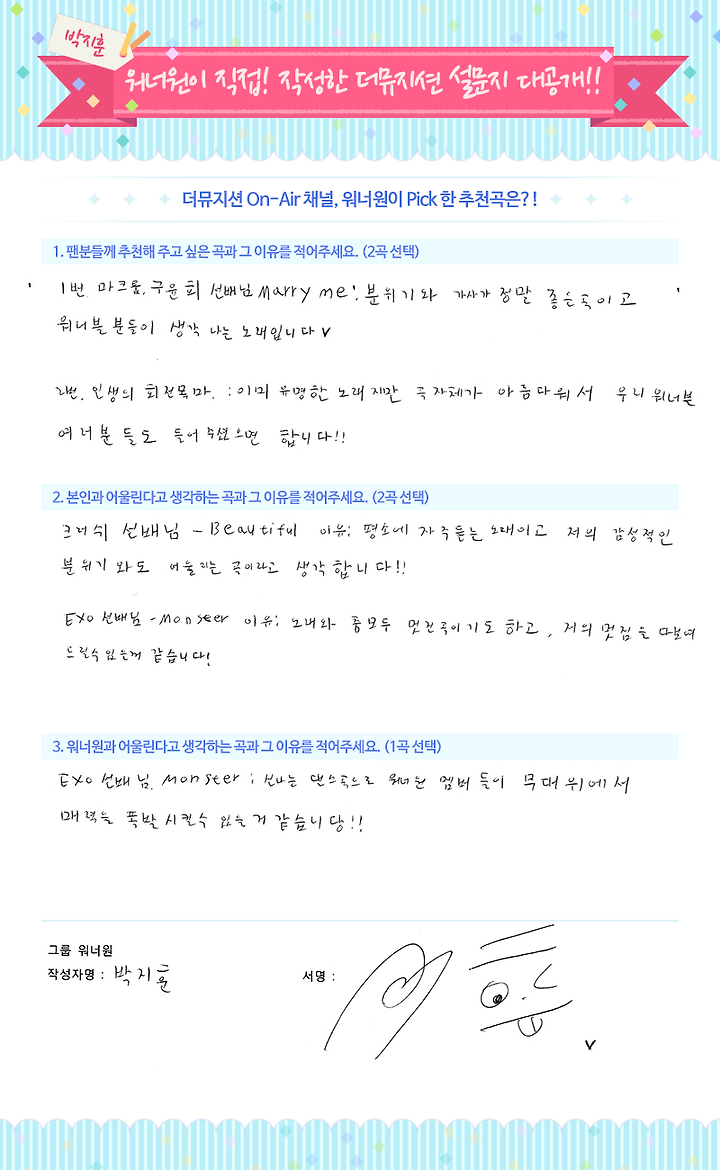 박지훈
워너원이 직접! 작성한 더뮤지션 설문지 대공개!!
더뮤지션 On-Air 채널, 워너원이 Pick 한 추천곡은?!
1. 팬분들께 추천해 주고 싶은 곡과 그 이유를 적어주세요. (2곡 선택)
1번. 마크툽, 구윤회 선배님 Marry me : 분위기와 가사가 정말 좋은곡이고
워너블 분들이 생각 나는 노래입니다
2번. 인생의 회전목마. : 이미 유명한 노래지만 곡 자체가 아름다워서 우리 워너블
여러분 들도 들어 주셨으면 합니다!!
2. 본인과 어울린다고 생각하는 곡과 그 이유를 적어주세요. (2곡 선택)
크러쉬 선배님 - Beautiful 이유: 평소에 자주듣는 노래이고 저의 감성적인
분위기 와도 어울리는 곡이라고 생각합니다!!
EXO 선배님 - Monster 이유: 노래와 춤모두 멋진곡이기도 하고, 저의 멋짐을 다보여
드릴수있는거 같습니다!
3. 워너원과 어울린다고 생각하는 곡과 그 이유를 적어주세요. (1곡 선택)
EXO 선배님. Monster : 신나는 댄스곡으로 워너원 멤버들이 무대위에서
매력을 폭발시킬수 있는거 같습니당!!
그룹 워너원
작성자명 : 박지훈
서명 :